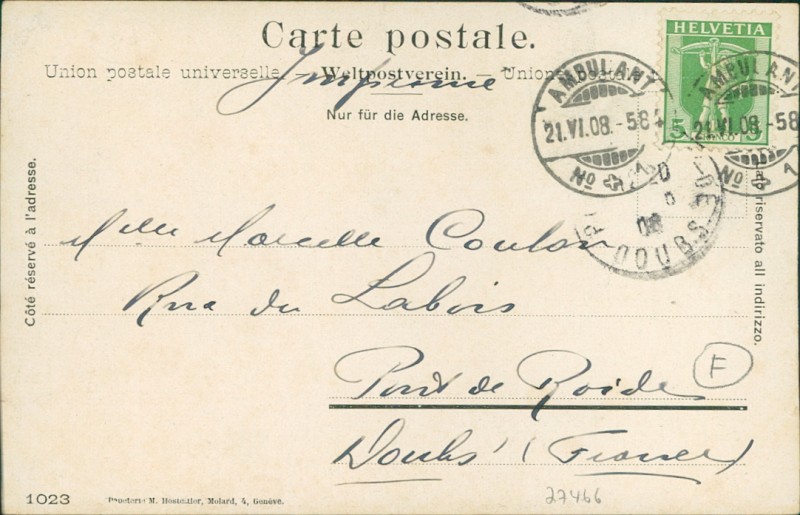 Carte postale.
Union postale universelle. — Weltpostverein. — Unione
Imprimé
Nur für die Adresse.
HELVETIA
5
AMBULANT
21.VI.08.-58
No 1
AMBULANT
21.VI.08.-58
No 1
08
DOUBS
Côté réservé à l'adresse.
riservato all indirizzo.
Mlle Marcelle Coulon
Rue du Labois
Pont de Roide
Doubs (France)
F
1023
Papeterie M. Hostettler, Molard, 4, Genève.
27466